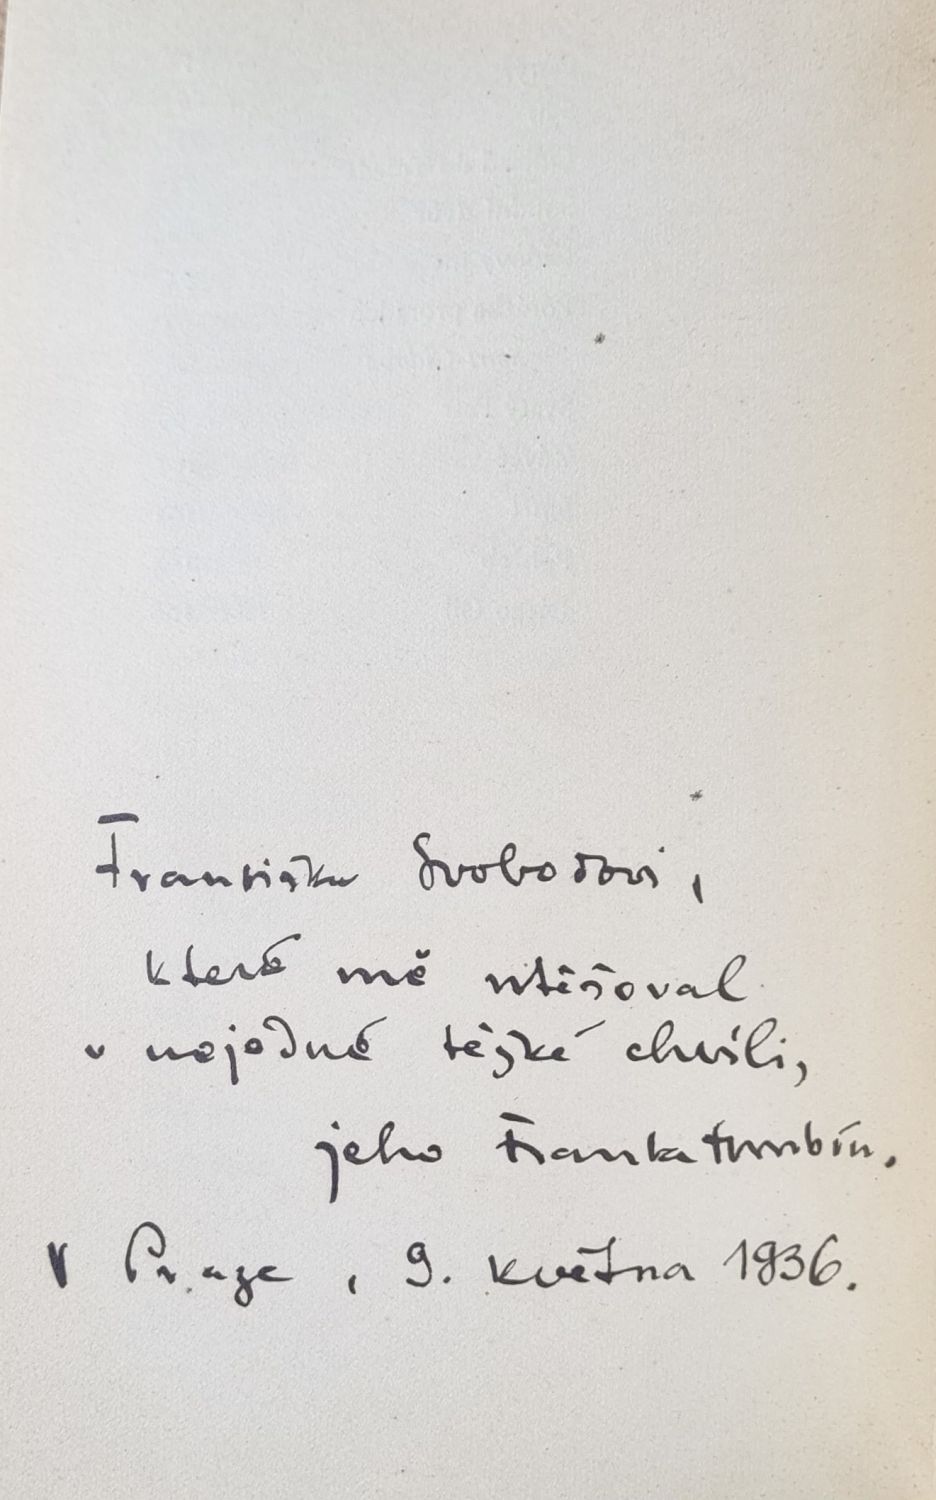 Františku Svobodovi,
které mě utěšoval
v nejedné těžké chvíli,
jeho
V Praze, 9. května 1936.